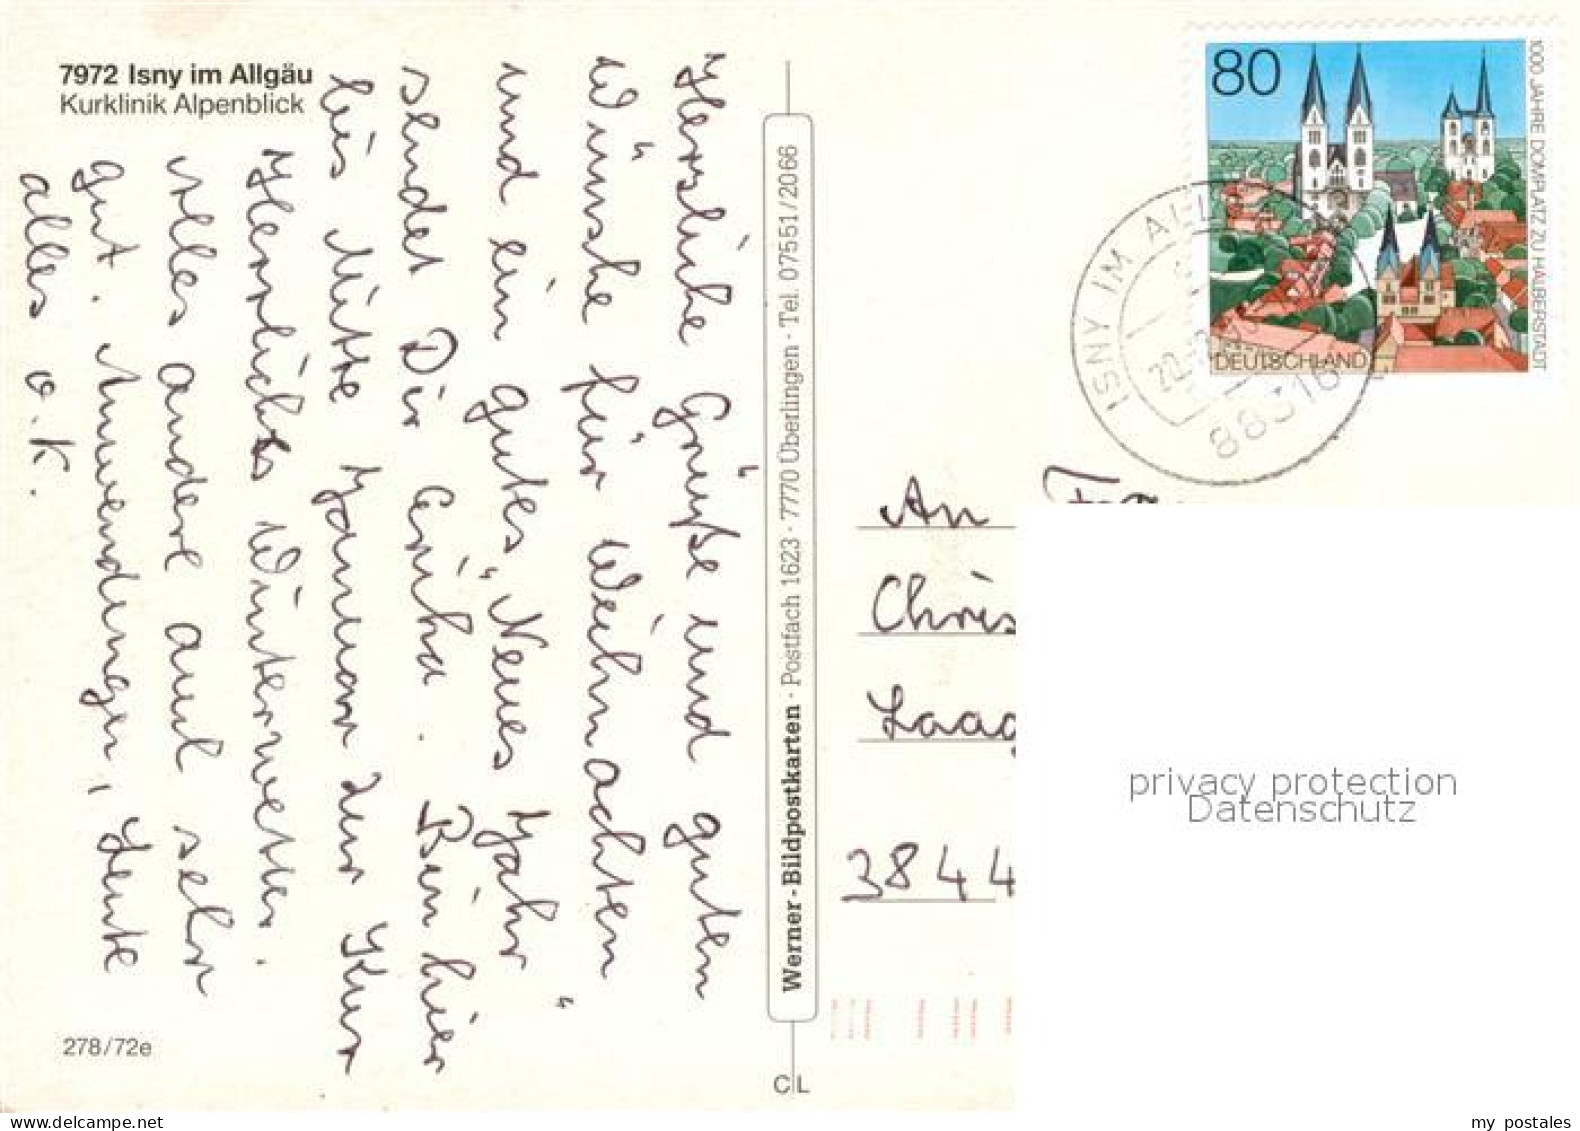 7972 Isny im Allgäu
Kurklinik Alpenblick
Herzliche Grüße und guten
Wünsche für Weihnachten
und ein gutes „Neues Jahr“
sendet Dir Anita. Bin hier
bis Mitte Januar zur Kur
Herrliches Winterwetter.
Alles andere auch sehr
gut. Anwendungen, Leute
alles o.K.
278/72e
Werner-Bildpostkarten · Postfach 1623 · 7770 Überlingen · Tel. 07551/2066
C L
80
1000 JAHRE DOMPLATZ ZU HALBERSTADT
DEUTSCHLAND
ISNY IM ALL
88316
An
Chris
Laag
3844
privacy protection
Datenschutz
my postales